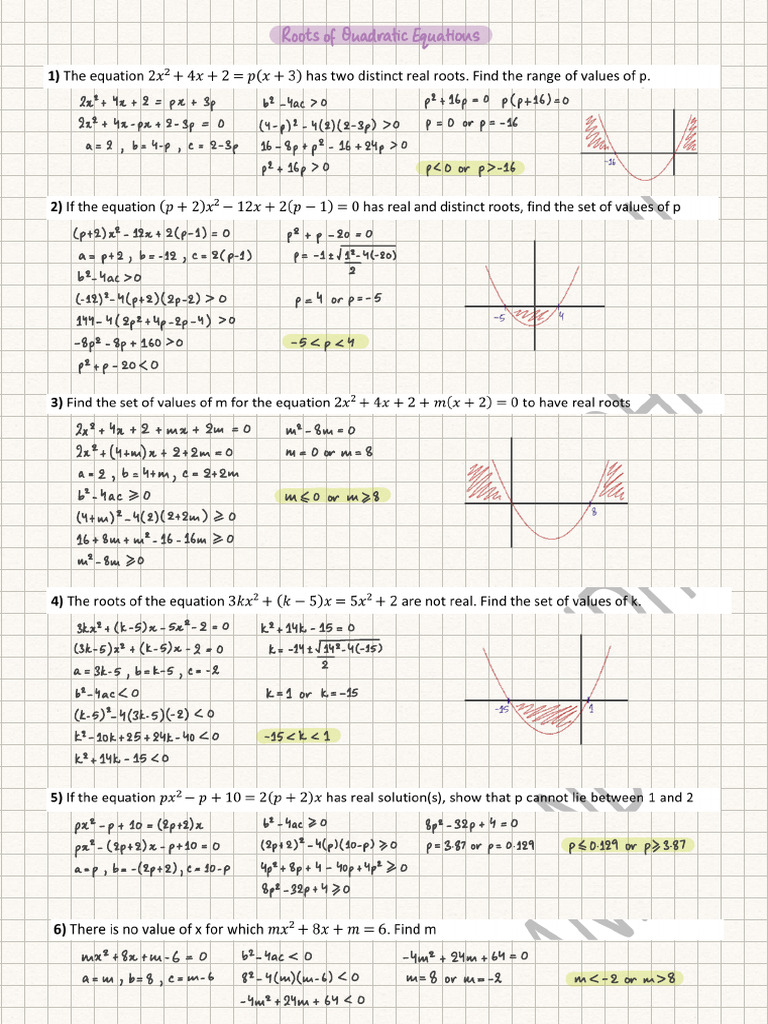 Roots of Quadratic Equations
1) The equation 2x² + 4x + 2 = p(x + 3) has two distinct real roots. Find the range of values of p.
2x² + 4x + 2 = px + 3p
2x² + 4x - px + 2 - 3p = 0
a = 2 , b = 4-p , c = 2-3p
b² - 4ac > 0
(4-p)² - 4(2)(2-3p) > 0
16 - 8p + p² - 16 + 24p > 0
p² + 16p > 0
p² + 16p = 0 p(p+16) = 0
p = 0 or p = -16
p<0 or p>-16
-16
2) If the equation (p + 2)x² − 12x + 2(p − 1) = 0 has real and distinct roots, find the set of values of p
(p+2)x² - 12x + 2(p-1) = 0
a = p+2 , b = -12 , c = 2(p-1)
b² - 4ac > 0
(-12)² - 4(p+2)(2p-2) > 0
144 - 4(2p² + 4p - 2p - 4) > 0
-8p² - 8p + 160 > 0
p² + p - 20 < 0
p² + p - 20 = 0
p = -1 ± √1² - 4(-20)
2
p = 4 or p = -5
-5 < p < 4
-5 4
3) Find the set of values of m for the equation 2x² + 4x + 2 + m(x + 2) = 0 to have real roots
2x² + 4x + 2 + mx + 2m = 0
2x² + (4+m)x + 2 + 2m = 0
a = 2 , b = 4+m , c = 2+2m
b² - 4ac ⩾ 0
(4+m)² - 4(2)(2+2m) ⩾ 0
16 + 8m + m² - 16 - 16m ⩾ 0
m² - 8m ⩾ 0
m² - 8m = 0
m = 0 or m = 8
m ⩽ 0 or m ⩾ 8
8
4) The roots of the equation 3kx² + (k − 5)x = 5x² + 2 are not real. Find the set of values of k.
3kx² + (k-5)x - 5x² - 2 = 0
(3k-5)x² + (k-5)x - 2 = 0
a = 3k-5 , b = k-5 , c = -2
b² - 4ac < 0
(k-5)² - 4(3k-5)(-2) < 0
k² - 10k + 25 + 24k - 40 < 0
k² + 14k - 15 < 0
k² + 14k - 15 = 0
k = -14 ± √14² - 4(-15)
2
k = 1 or k = -15
-15 < k < 1
-15 1
5) If the equation px² − p + 10 = 2(p + 2)x has real solution(s), show that p cannot lie between 1 and 2
px² - p + 10 = (2p+2)x
px² - (2p+2)x - p + 10 = 0
a = p , b = -(2p+2), c = 10-p
b² - 4ac ⩾ 0
(2p+2)² - 4(p)(10-p) ⩾ 0
4p² + 8p + 4 - 40p + 4p² ⩾ 0
8p² - 32p + 4 ⩾ 0
8p² - 32p + 4 = 0
p = 3.87 or p = 0.129
p ⩽ 0.129 or p ⩾ 3.87
6) There is no value of x for which mx² + 8x + m = 6. Find m
mx² + 8x + m - 6 = 0
a = m , b = 8 , c = m-6
b² - 4ac < 0
8² - 4(m)(m-6) < 0
-4m² + 24m + 64 < 0
-4m² + 24m + 64 = 0
m = 8 or m = -2
m < -2 or m > 8